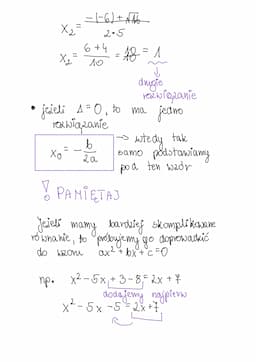 x₂ = -(-6)+√16 / 2·5
x₂ = 6+4 / 10 = 10/10 = 1
drugie
rozwiązanie
• jeżeli Δ=0, to ma jedno
rozwiązanie
x₀ = - b/2a → wtedy tak
samo podstawiamy
pod ten wzór
! PAMIĘTAJ
Jeżeli mamy bardziej skomplikowane
równanie, to próbujemy go doprowadzić
do wzoru ax²+bx+c=0
np. x²-5x+3-8=2x+7
dodajemy najpierw
x²-5x-5=2x+7